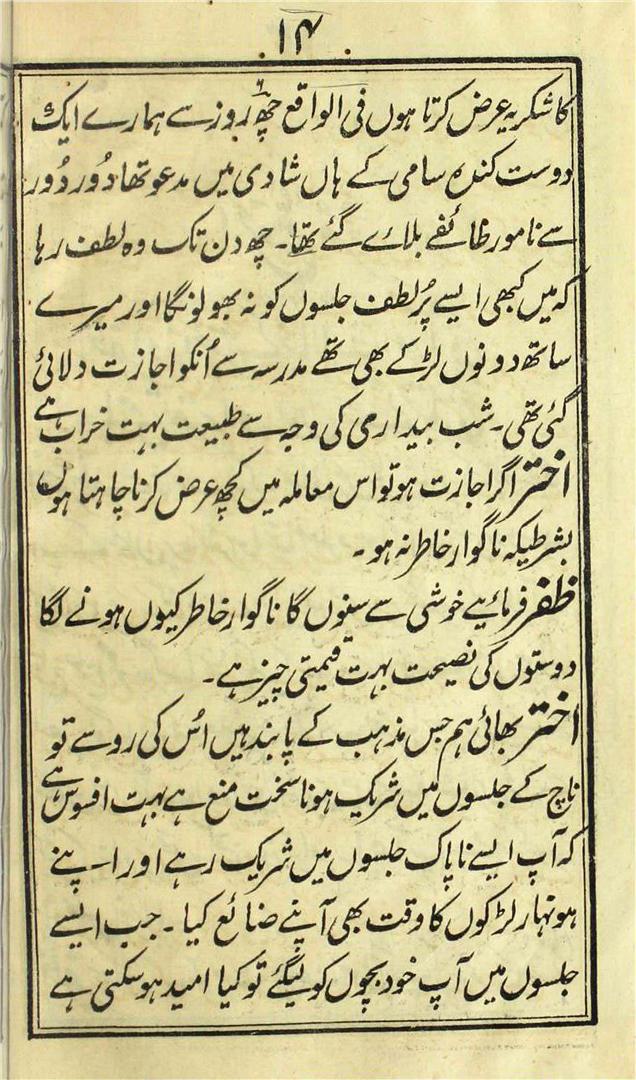 ۱۴
کا شکریہ عرض کرتا ہوں فی الواقع چھ روز سے ہمارے ایک
دوست کندہ سامی کے ہاں شادی میں مدعو تھا دُور دُور
سے نامور طائفے بلائے گئے تھا۔ چھ دن تک وہ لطف رہا
کہ میں کبھی ایسے پُر لطف جلسوں کو نہ بھولونگا اور میرے
ساتھ دونوں لڑکے بھی تھے مدرسہ سے اُنکو اجازت دلائی
گئی تھی۔ شب بیداری کی وجہ سے طبیعت بہت خراب ہے
اختر اگر اجازت ہو تو اس معاملہ میں کچھ عرض کرنا چاہتا ہوں
بشرطیکہ ناگوار خاطر نہ ہو۔
ظفر فرمائیے خوشی سے سنوں گا ناگوار خاطر کیوں ہونے لگا
دوستوں کی نصیحت بہت قیمتی چیز ہے۔
اختر بھائی ہم جس مذہب کے پابند ہیں اُس کی رو سے تو
ناچ کے جلسوں میں شریک ہونا سخت منع ہے بہت افسوس ہے
کہ آپ ایسے ناپاک جلسوں میں شریک رہے اور اپنے
ہونہار لڑکوں کا وقت بھی آپنے ضائع کیا۔ جب ایسے
جلسوں میں آپ خود بچوں کو لیگئے تو کیا امید ہوسکتی ہے